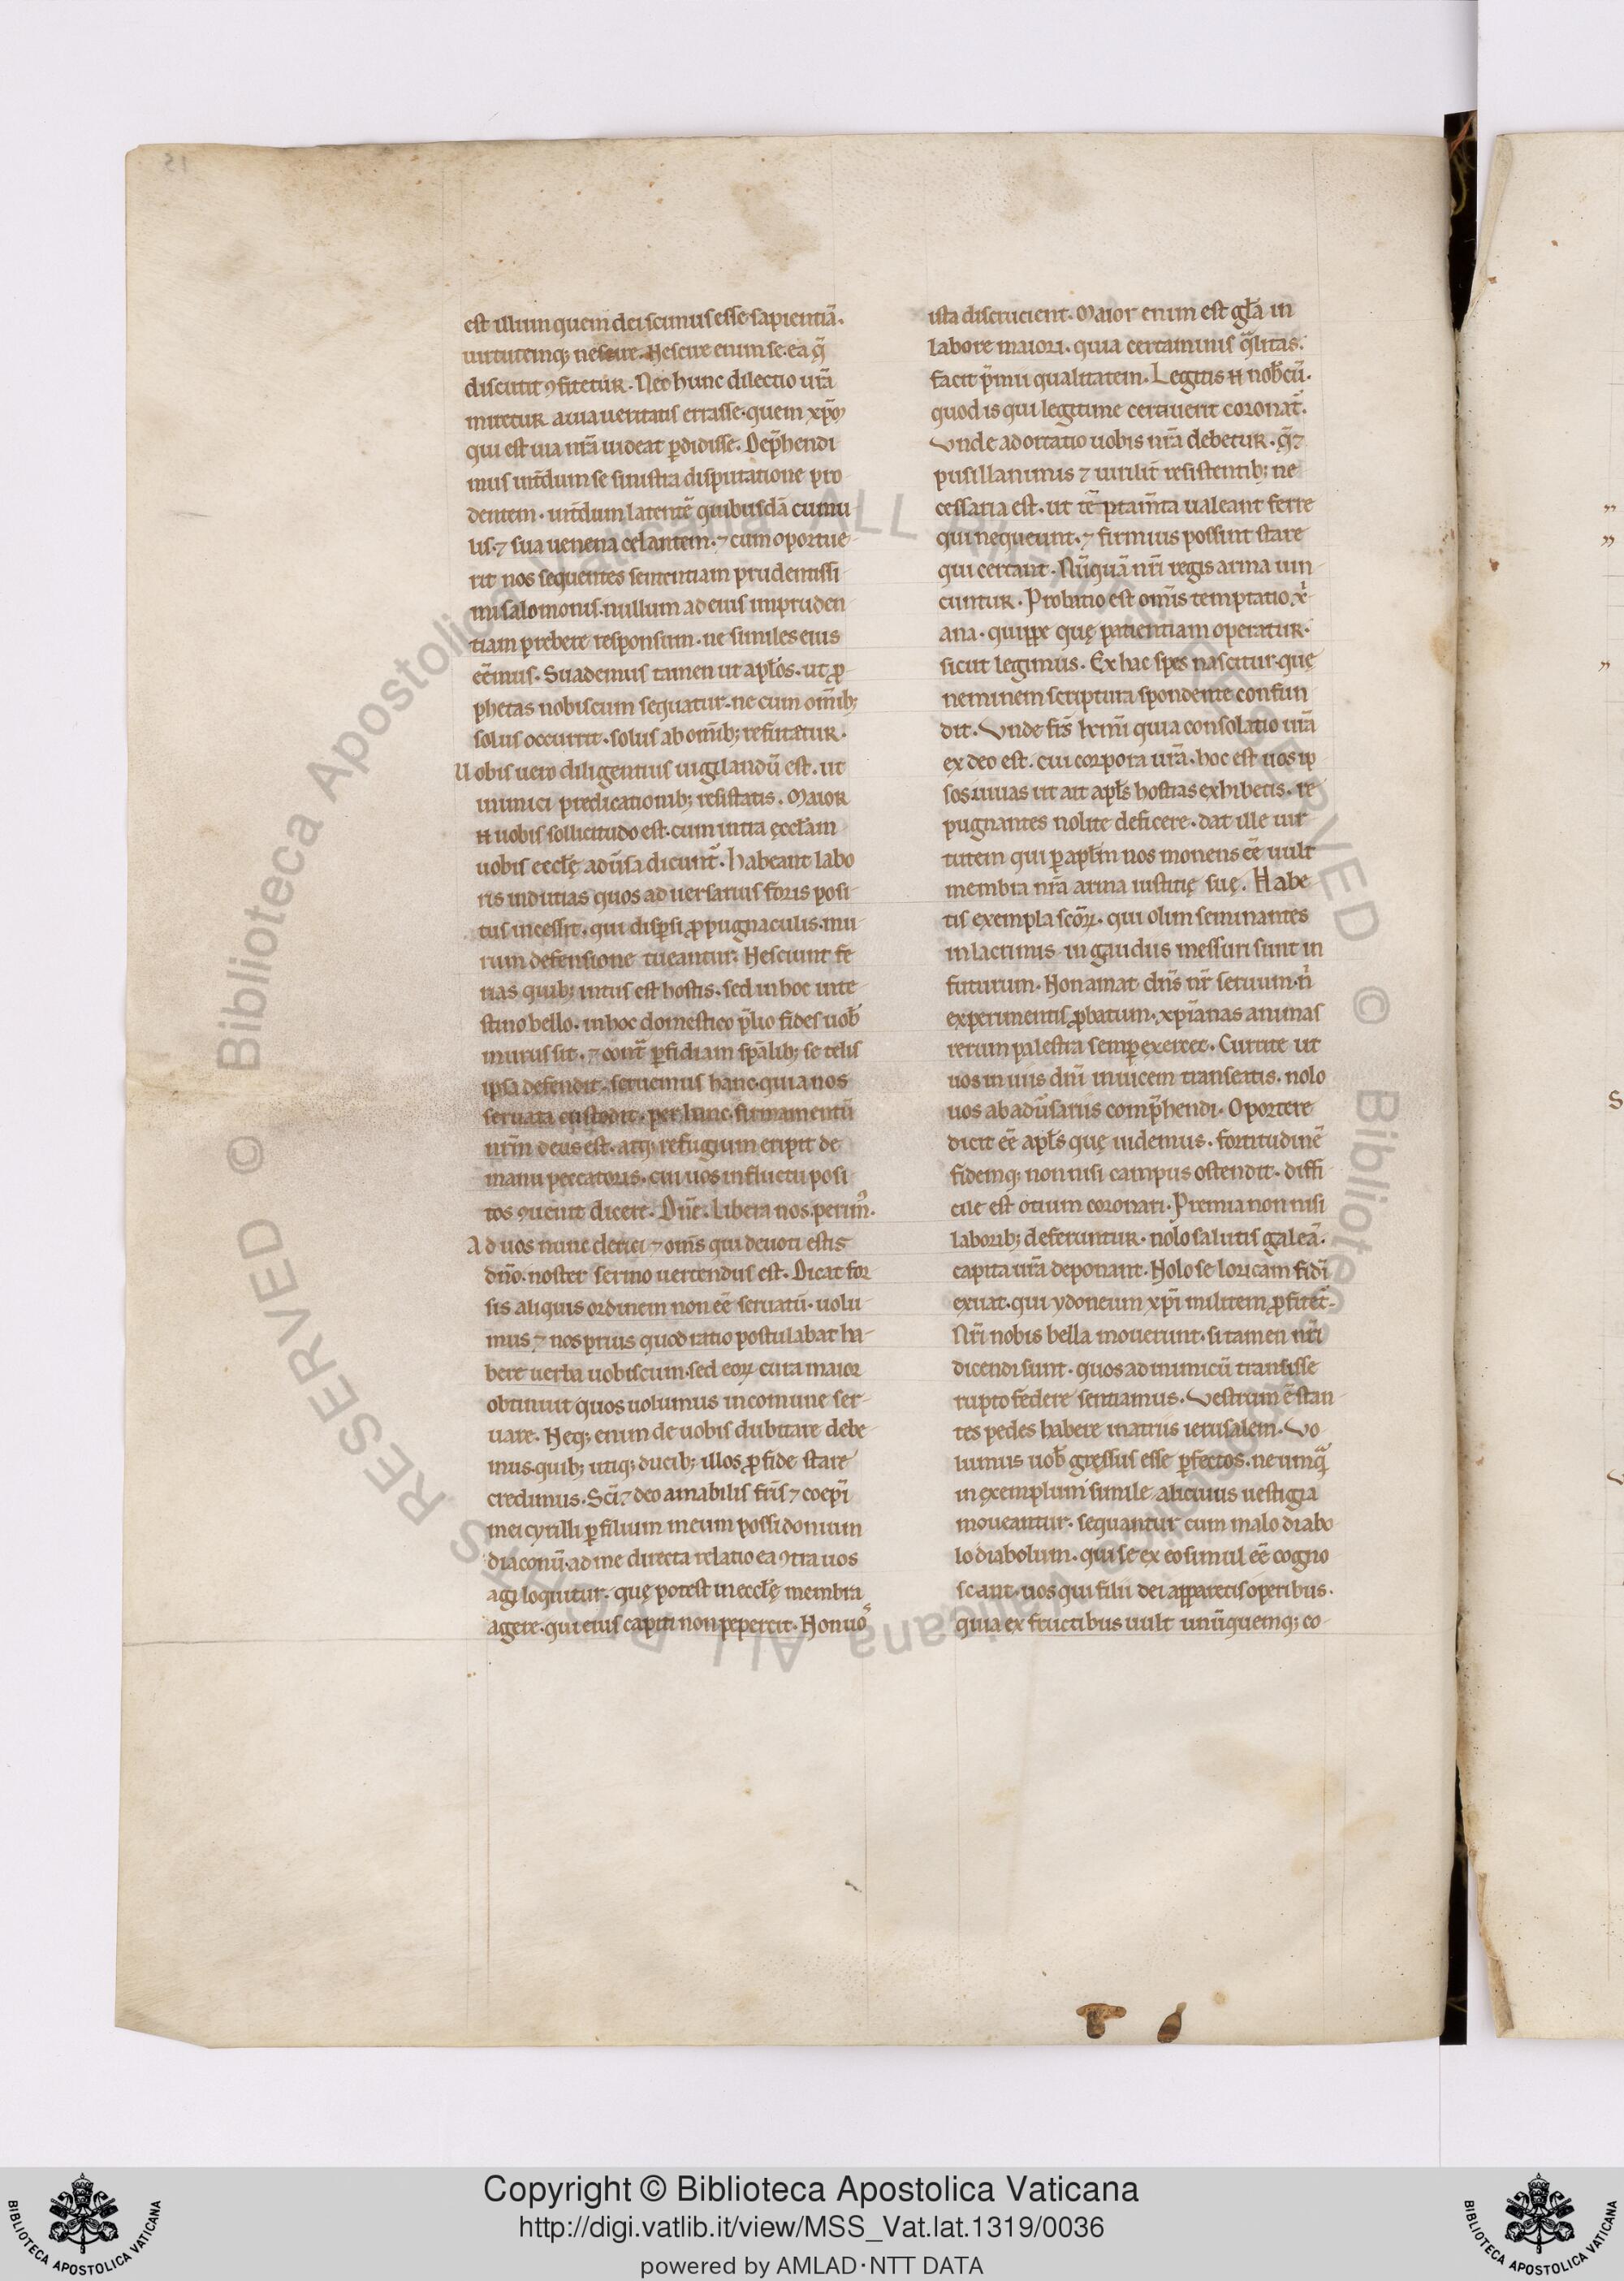 est illum quem dei scimus esse sapientiā.
uirtutemq; nescire. Nescire enim se ea q̄
discutit ꝯfitetur. Nec hunc dilectio ur̄a
miretur a uia ueritatis errasse. quem xp̄ō
qui est uia nr̄a uideat ꝑdidisse. Dep̄hendi
mus int̄dum se sinistra disputatione pro
dentem. int̄dum latentē quibusdā cumu
lis. ⁊ sua uenena celantem. ⁊ cum oportue
rit nos sequentes sententiam prudentissi
mi salomonis. nullum ad eius impruden
tiam prebere responsum. ne similes eius
eēimus. Suademus tamen ut apl̄os. ut ꝓ
phetas nobiscum sequatur. ne cum om̄ib;
solus occurrit. solus ab om̄ib; refutetur.
Uobis uero diligentius uigilandū est. ut
inimici predicationib; resistatis. Maior
н uobis sollicitudo est. cum intra ęccl̄am
uobis eccl̄ę adūsa dicunt᷑. habeant labo
ris indutias quos aduersarius foris posi
tus incessit. qui disꝑsi ꝓpugnaculis. mu
rum defensione tueantur. Nesciunt fe
rias quib; intus est hostis. sed in hoc inte
stino bello. in hoc domestico p̄lio fides uob̄
murus sit. ⁊ cont̄ ꝑfidiam sp̄alib; se telis
ipsa defendit. seruemus hanc. quia nos
seruata custodit. per hanc firmamentū
nr̄m deus est. atq; refugium eripit de
manu peccatoris. cui uos in fluctu posi
tos ꝯuenit dicere. Dn̄e. libera nos. perim᷒.
Ad uos nunc clerici ⁊ om̄s qui deuoti estis
dn̄o. noster sermo uertendus est. Dicat for
sis aliquis ordinem non eē seruatū. uolu
mus ⁊ nos prius quod ratio postulabat ha
bere uerba uobiscum. sed eoꝝ cura maior
obtinuit quos uolumus in comune ser
uare. Neq; enim de uobis dubitare debe
mus. quib; utiq; ducib; illos ꝓ fide stare
credimus. Sc̄i ⁊ deo amabilis fr̄is ⁊ coep̄i
mei cyrilli ꝑ filium meum possidonium
diaconū. ad me directa relatio ea ꝯtra uos
agi loquitur. quę potest in eccl̄ę membra
agere. qui eius capiti non pepercit. Non uo᷒
ista discrucient. Maior enim est gl̄a in
labore maiori. quia certaminis q̄litas.
facit p̄mii qualitatem. Legitis н nob̄cū.
quod is qui legitime certauerit coronat᷑.
Unde adortatio uobis nr̄a debetur. q̄ ⁊
pusillanimis ⁊ uirilit̄ resistentib; ne
cessaria est. ut tēptam̄ta ualeant ferre
qui nequeunt. ⁊ firmius possint stare
qui certant. Nūquā nr̄i regis arma uin
cuntur. Probatio est om̄is temptatio. x̄
ana. quippe quę patientiam operatur.
sicut legimus. Ex hac spes nascitur. quę
neminem scriptura spondente confun
dit. Unde fr̄s kr̄mi quia consolatio ur̄a
ex deo est. cui corpora ur̄a. hoc est uos ip
sos. uiuas ut ait apl̄s hostias exhibetis. re
pugnantes nolite deficere. dat ille uir
tutem qui ꝑ apl̄m nos monens eē uult
membra nr̄a arma iustitię suę. Habe
tis exempla sc̄oꝝ. qui olim seminantes
in lacrimis in gaudiis messuri sunt in
futurum. Non amat dn̄s nr̄ seruum. n̄
experimentis ꝓbatum. xp̄ianas animas
rerum palestra semꝑ exercet. Currite ut
uos in uiis dn̄i inuicem transeatis. nolo
uos ab adūsariis comp̄hendi. Oportere
dicit eē apl̄s quę uidemus. fortitudinē
fidemq; non nisi campus ostendit. diffi
cile est otium coronari. Premia non nisi
laborib; deferuntur. nolo salutis galeā.
capita ur̄a deponant. Nolo se loricam fidī
exuat. qui ydoneum xp̄i militem ꝓfitet᷑.
Nr̄i nobis bella mouerunt. si tamen nr̄i
dicendi sunt. quos ad inimicū transisse
rupto federe sentiamus. Vestrum ē stan
tes pedes habere in atriis ierusalem. Vo
lumus uob̄ gręssus esse ꝑfectos. ne umq̄
in ęxemplum simile alicuius uestigia
moueantur. sequantur cum malo diabo
lo diabolum. qui se ex eo simul eē cogno
scant. uos qui filii dei apparetis operibus.
quia ex fructibus uult unūquemq; co
Copyright © Biblioteca Apostolica Vaticana
http://digi.vatlib.it/view/MSS_Vat.lat.1319/0036
powered by AMLAD·NTT DATA